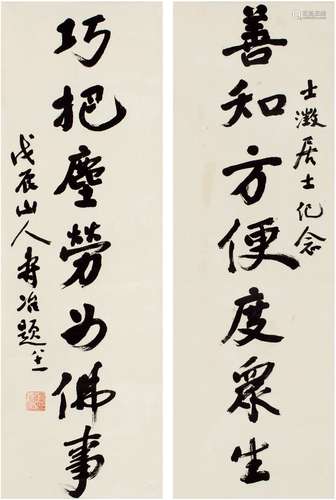 善知方便度眾生
士澂居士紀念
巧把塵勞为佛事
戊辰山人壽冶題